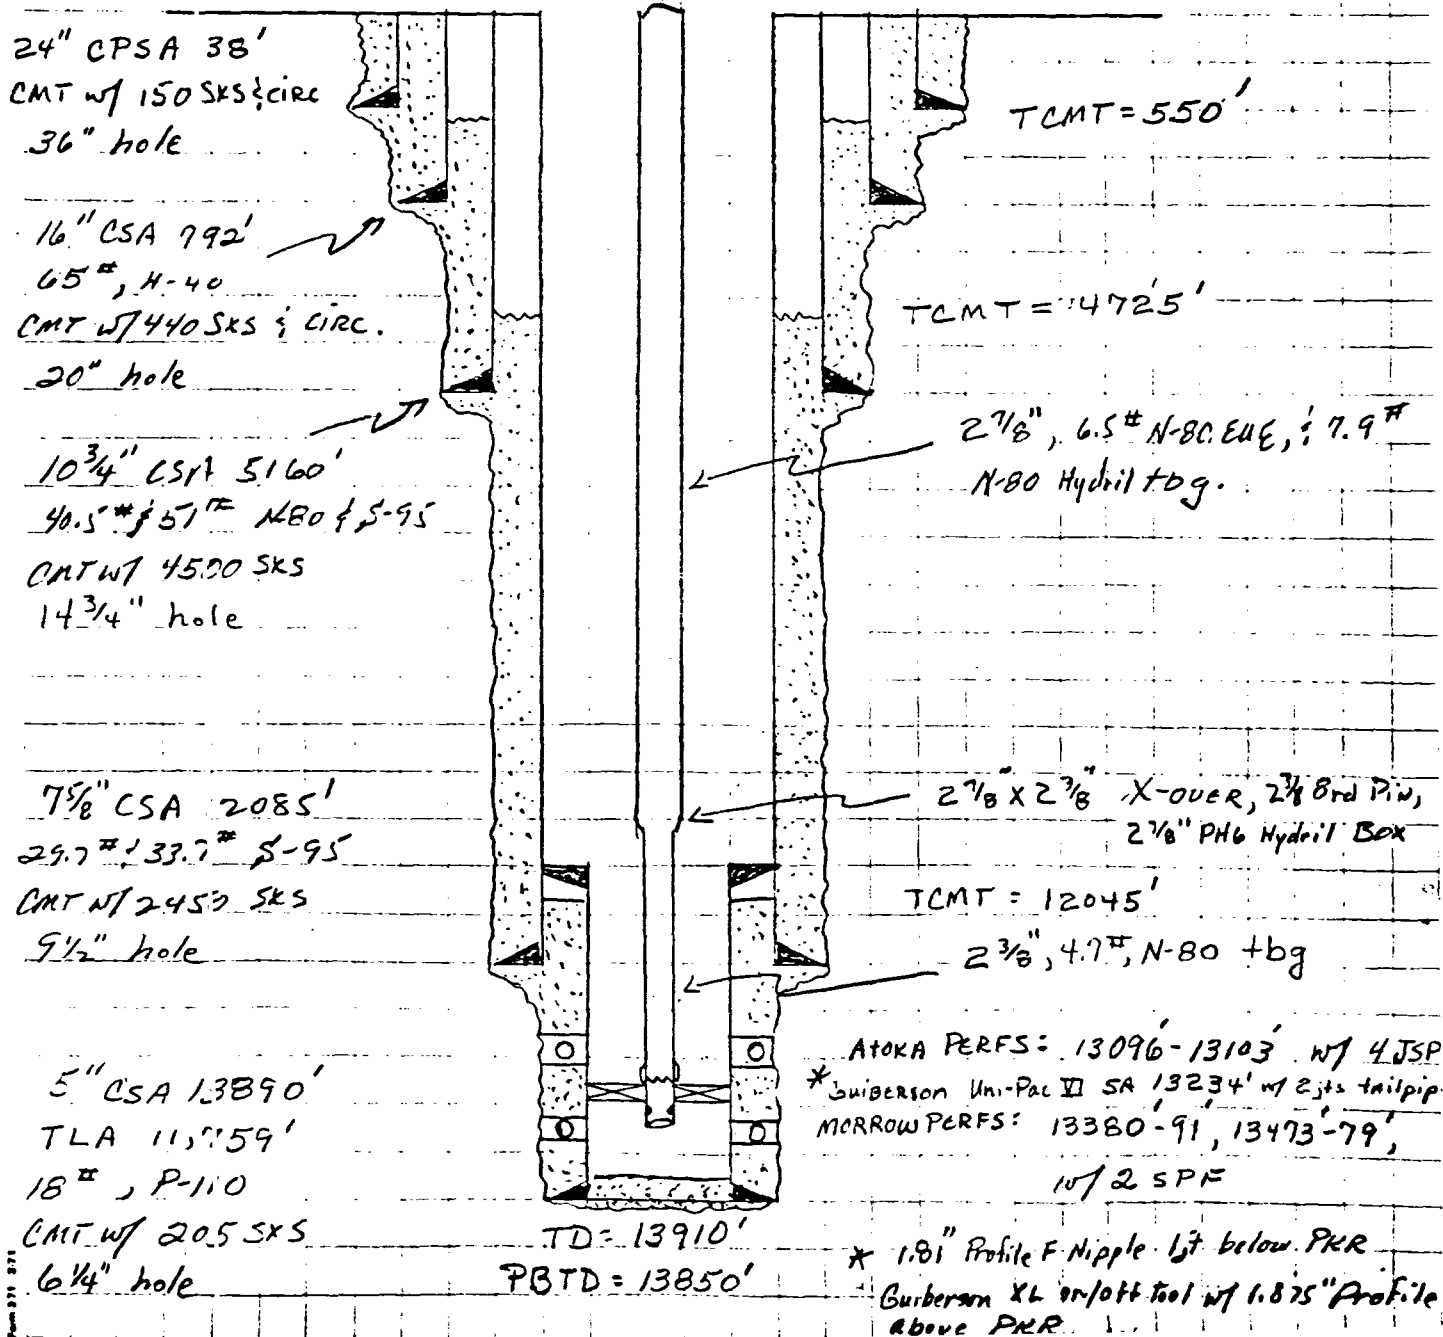 24" CPSA 38'
CMT w/ 150 SKS & CIRC
36" hole
16" CSA 792'
65#, H-40
CMT w/ 440 SKS & CIRC.
20" hole
10 3/4" CSA 5160'
40.5# & 51# N80 & S-95
CMT w/ 4500 SKS
14 3/4" hole
7 5/8" CSA 2085'
29.7# & 33.7# S-95
CMT w/ 2450 SKS
9 1/2" hole
5" CSA 13890'
TLA
18#, P-110
CMT w/ 205 SXS
6 1/4" hole
TD = 13910'
PBTD = 13850'
TCMT = 550'
TCMT = 4725'
2 7/8", 6.5# N-80 EUE, & 7.9#
N-80 Hydril tbg.
2 7/8" X 2 3/8" X-OVER, 2 3/8 8rd Pin,
2 7/8" PH6 Hydril BOX
TCMT = 12045'
2 3/8", 4.7#, N-80 tbg
ATOKA PERFS: 13096'-13103' w/ 4 JSP
* Guiberson Uni-Pac VI SA 13234' w/ 2 jts tailpip
MORROW PERFS: 13380'-91', 13473'-79',
w/ 2 SPF
* 1.81" Profile F Nipple 1 jt below PKR
Guiberson XL on/off tool w/ 1.875" Profile
above PKR